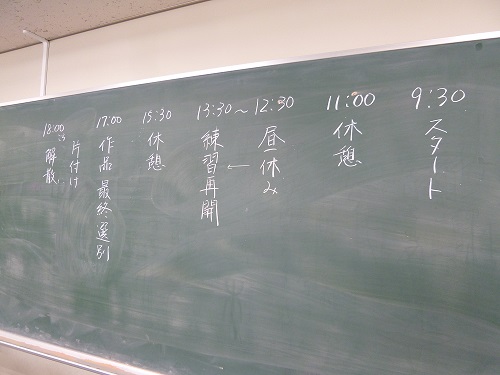 9:30
スタート
11:00
休憩
12:30
昼休み
←
〜
13:30
練習再開
15:30
休憩
17:00
作品 最終選別
片付け
18:00
解散